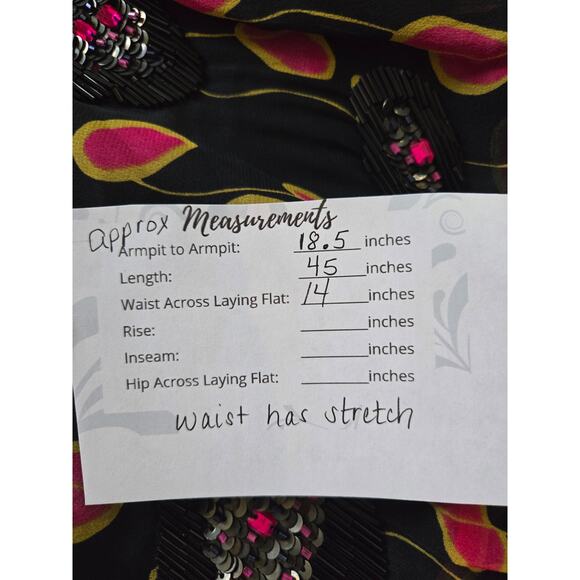 approx Measurements
Armpit to Armpit: 18.5 inches
Length: 45 inches
Waist Across Laying Flat: 14 inches
Rise: ______ inches
Inseam: ______ inches
Hip Across Laying Flat: ______ inches
waist has stretch